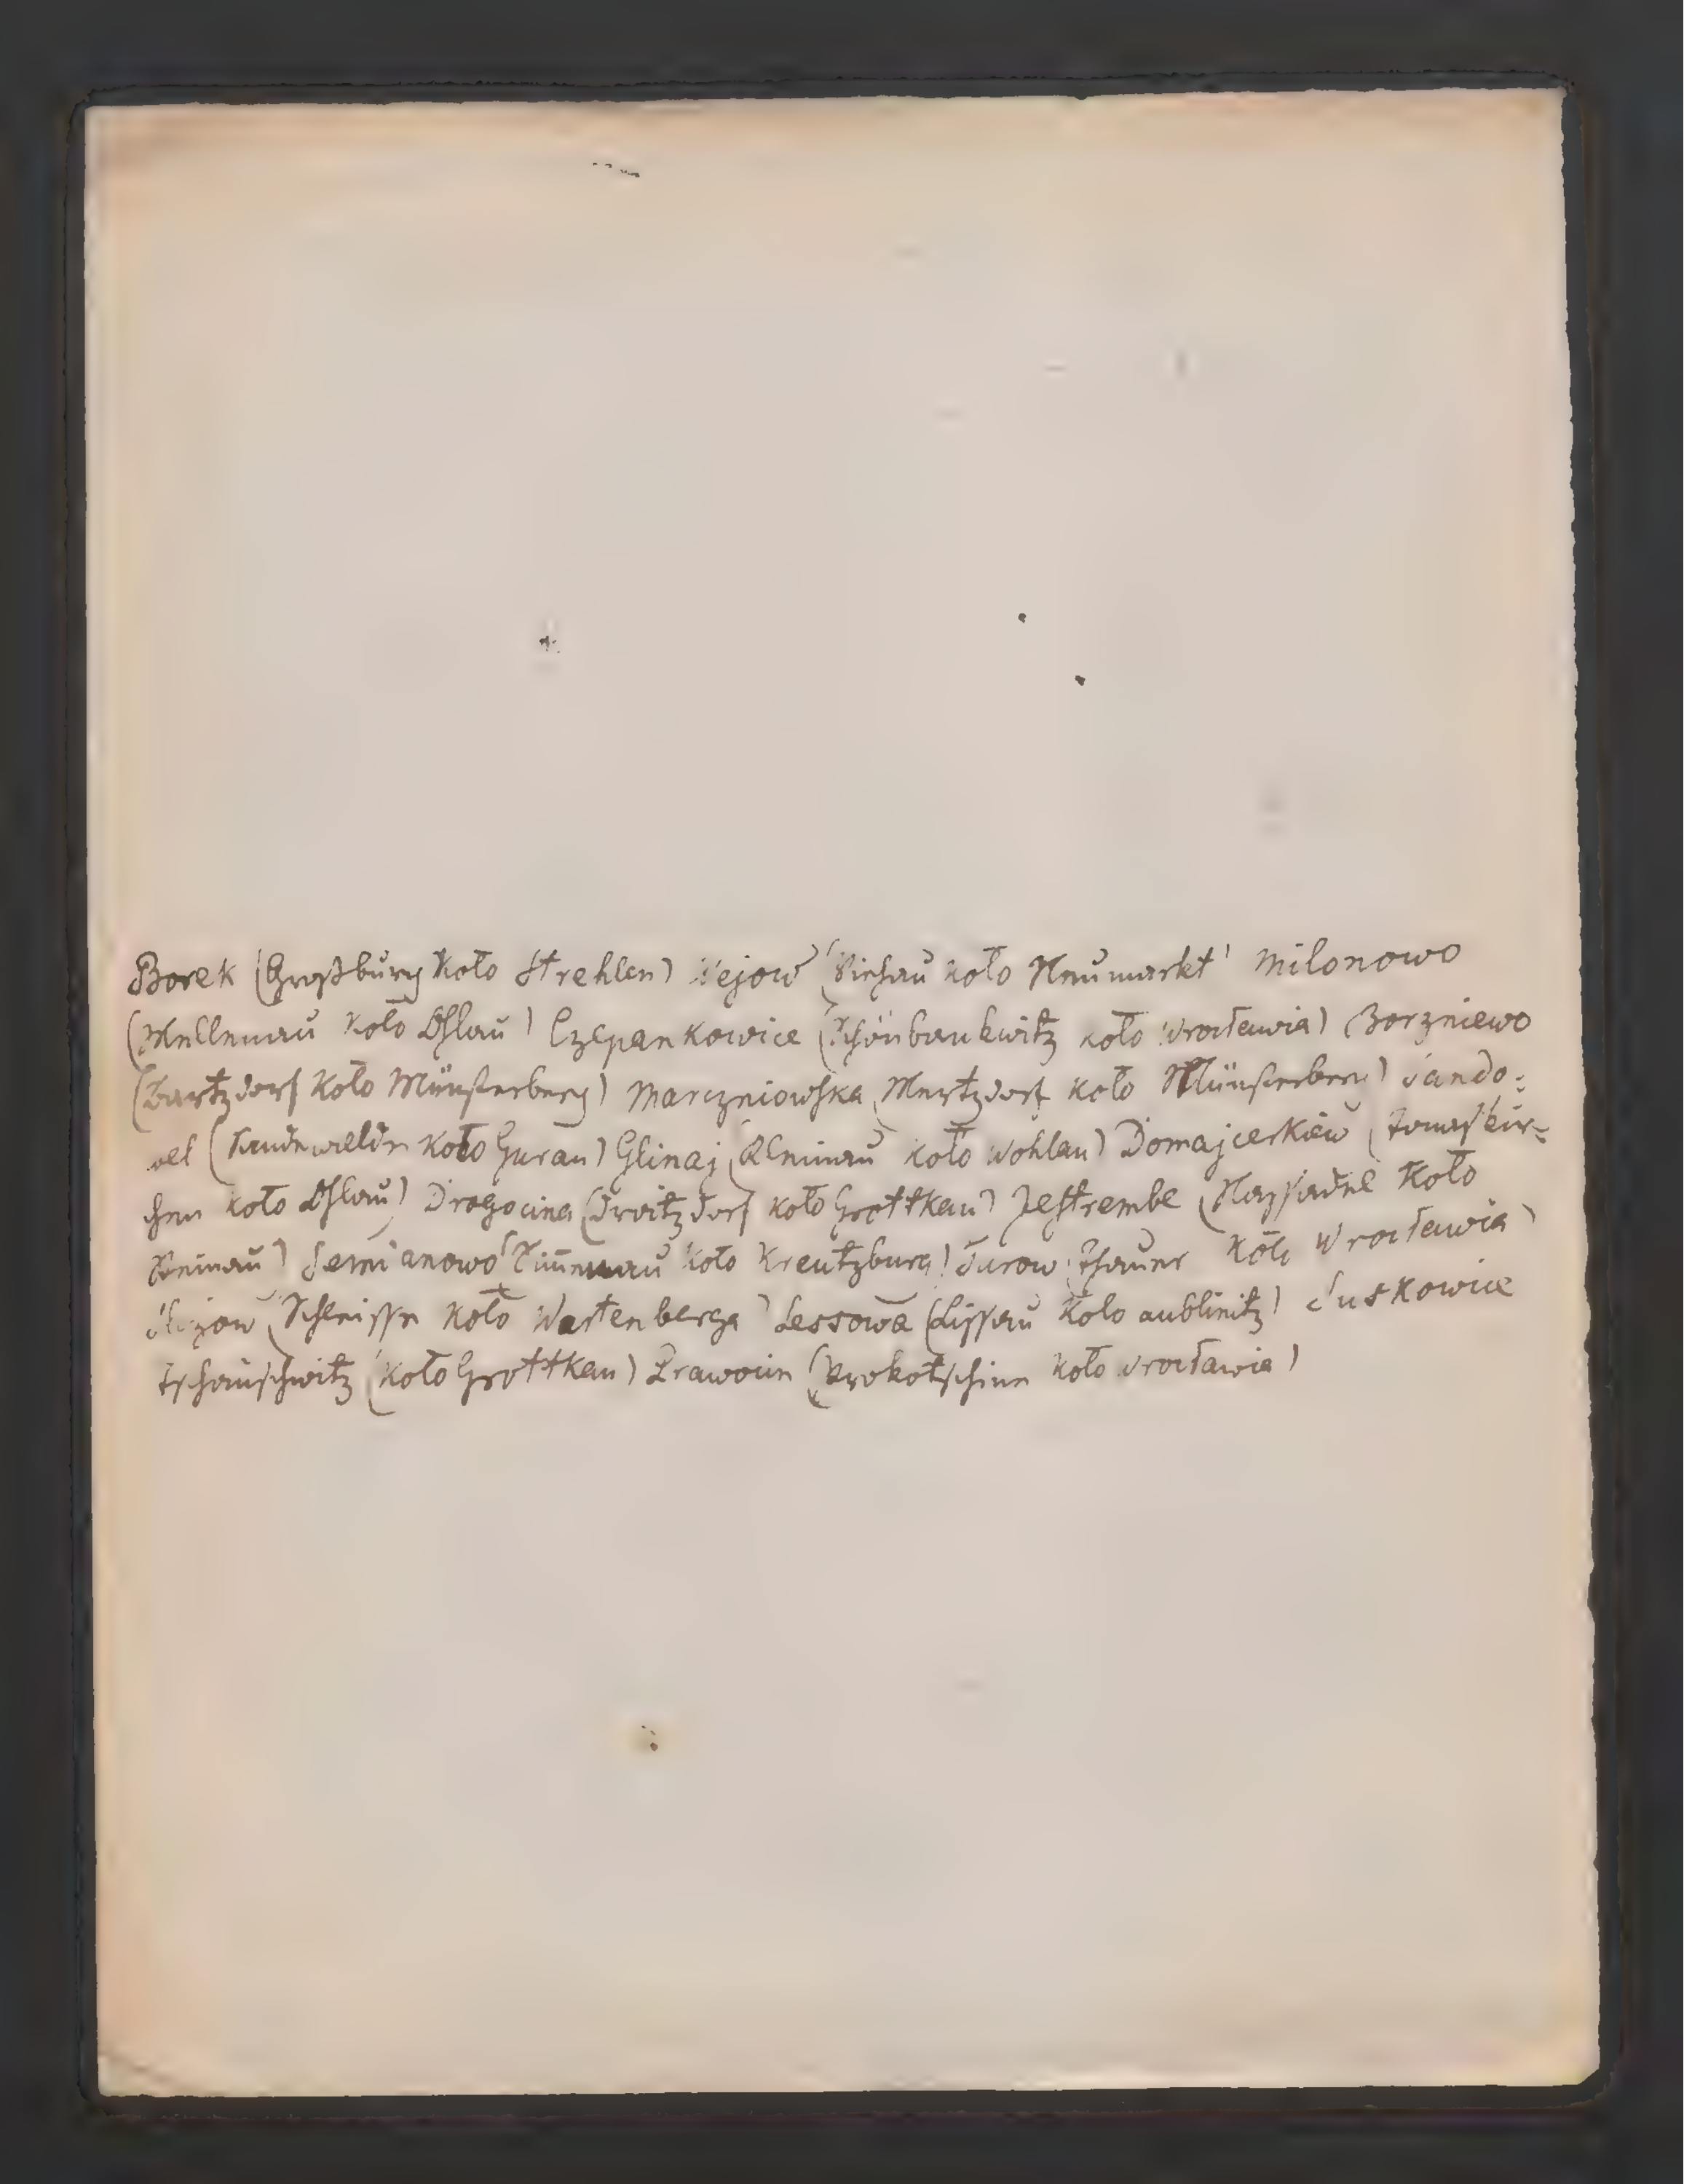 Borek (Großburg koło Strehlen) Kejow (Kiehau koło Neumarkt) Milonowo
(Mellenau koło Ohlau) Czepankowice (Schönbankwitz koło Wrocławia) Borzniewo
(Bartzdorf koło Münsterberg) Marczniowska (Mertzdorf koło Münsterberg) Sando-
wel (Sandewalde koło Gurau) Glinaj (Gleinau koło Wohlau) Domajcerkiew (Thomaskir-
chen koło Ohlau) Drogocina (Droitzdorf koło Grottkau) Jestrembe koło
Steinau) Semianowo (Simmenau koło Kreutzburg) Turow (Thauer koło Wrocławia)
(Schleisse koło Wartenberga) Lessowa (Lissau koło Lublinitz) Suskowice
Tschauschwitz (koło Grottkau) Krawocin (Krokotschine koło Wrocławia)